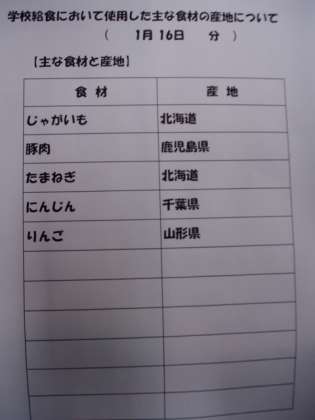 学校給食において使用した主な食材の産地について
( 1月 16日 分 )
【主な食材と産地】
食 材 産 地
じゃがいも 北海道
豚肉 鹿児島県
たまねぎ 北海道
にんじん 千葉県
りんご 山形県